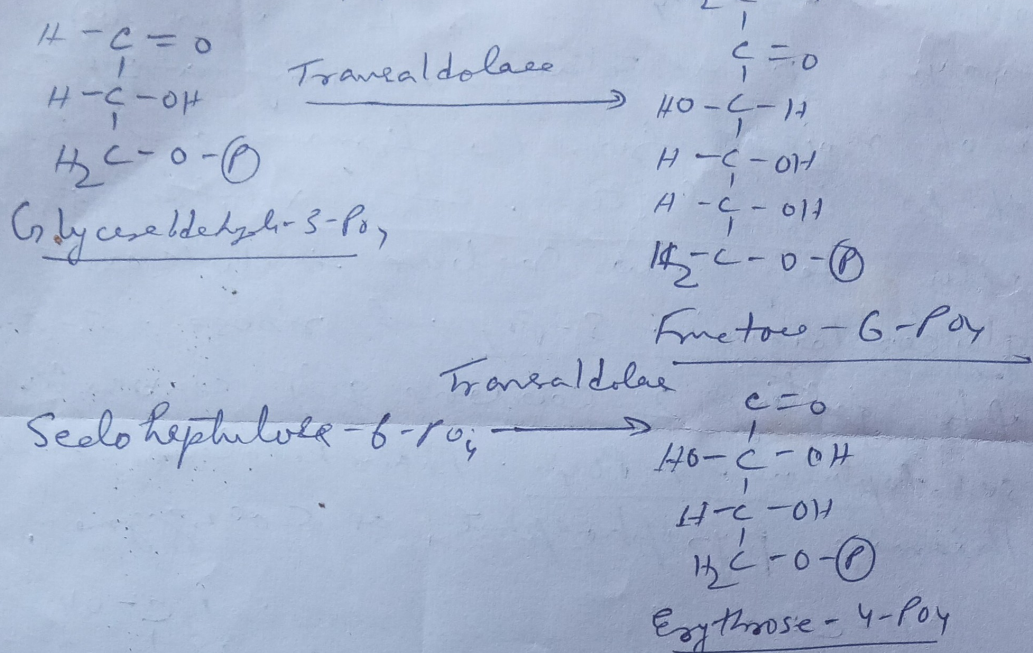 H - C = O
H - C - OH
H2 C - O - P
Glyceraldehyde-3-PO4
Transaldolase
C = O
HO - C - H
H - C - OH
H - C - OH
H2 - C - O - P
Fructose - 6 - PO4
Sedoheptulose - 6 - PO4
Transaldolase
C = O
HO - C - OH
H - C - OH
H2 C - O - P
Erythrose - 4 - PO4